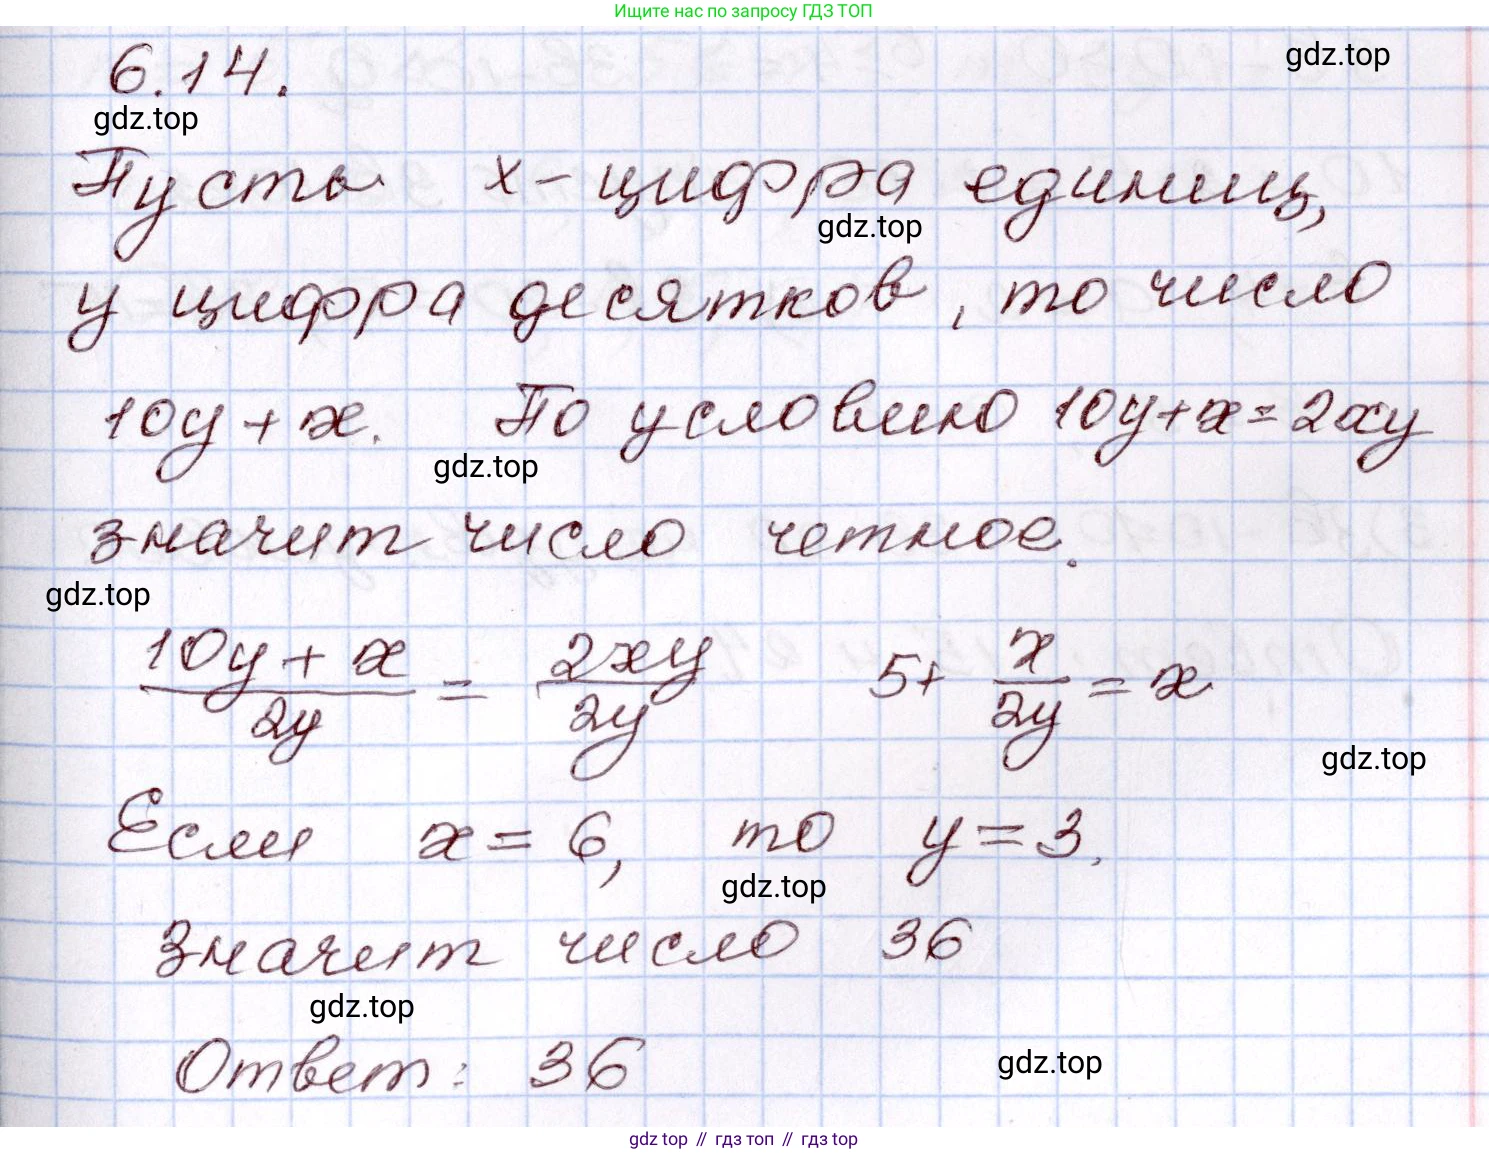 Ищите нас по запросу ГДЗ ТОП
gdz.top
6.14.
gdz.top
Пусть x – цифра единиц,
gdz.top
y цифра десятков, то число
10y + x. По условию 10y + x = 2xy
gdz.top
значит число четное.
gdz.top
10y + x / 2y = 2xy / 2y 5 + x / 2y = x
gdz.top
Если x = 6, то y = 3.
gdz.top
Значит число 36
gdz.top
Ответ: 36
gdz.top
gdz top // гдз топ // гдз top